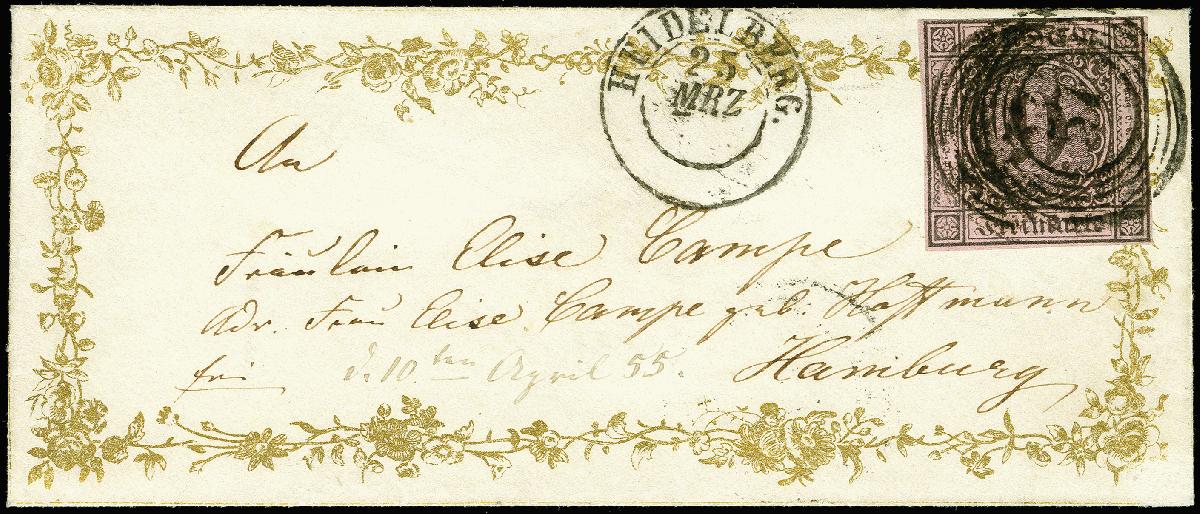 HEIDELBERG.
25
MRZ
An
Fräulein Elise Campe
Adr. Frau Elise Campe geb. Hoffmann
fri
d. 10ten April 55.
Hamburg
Freimarke